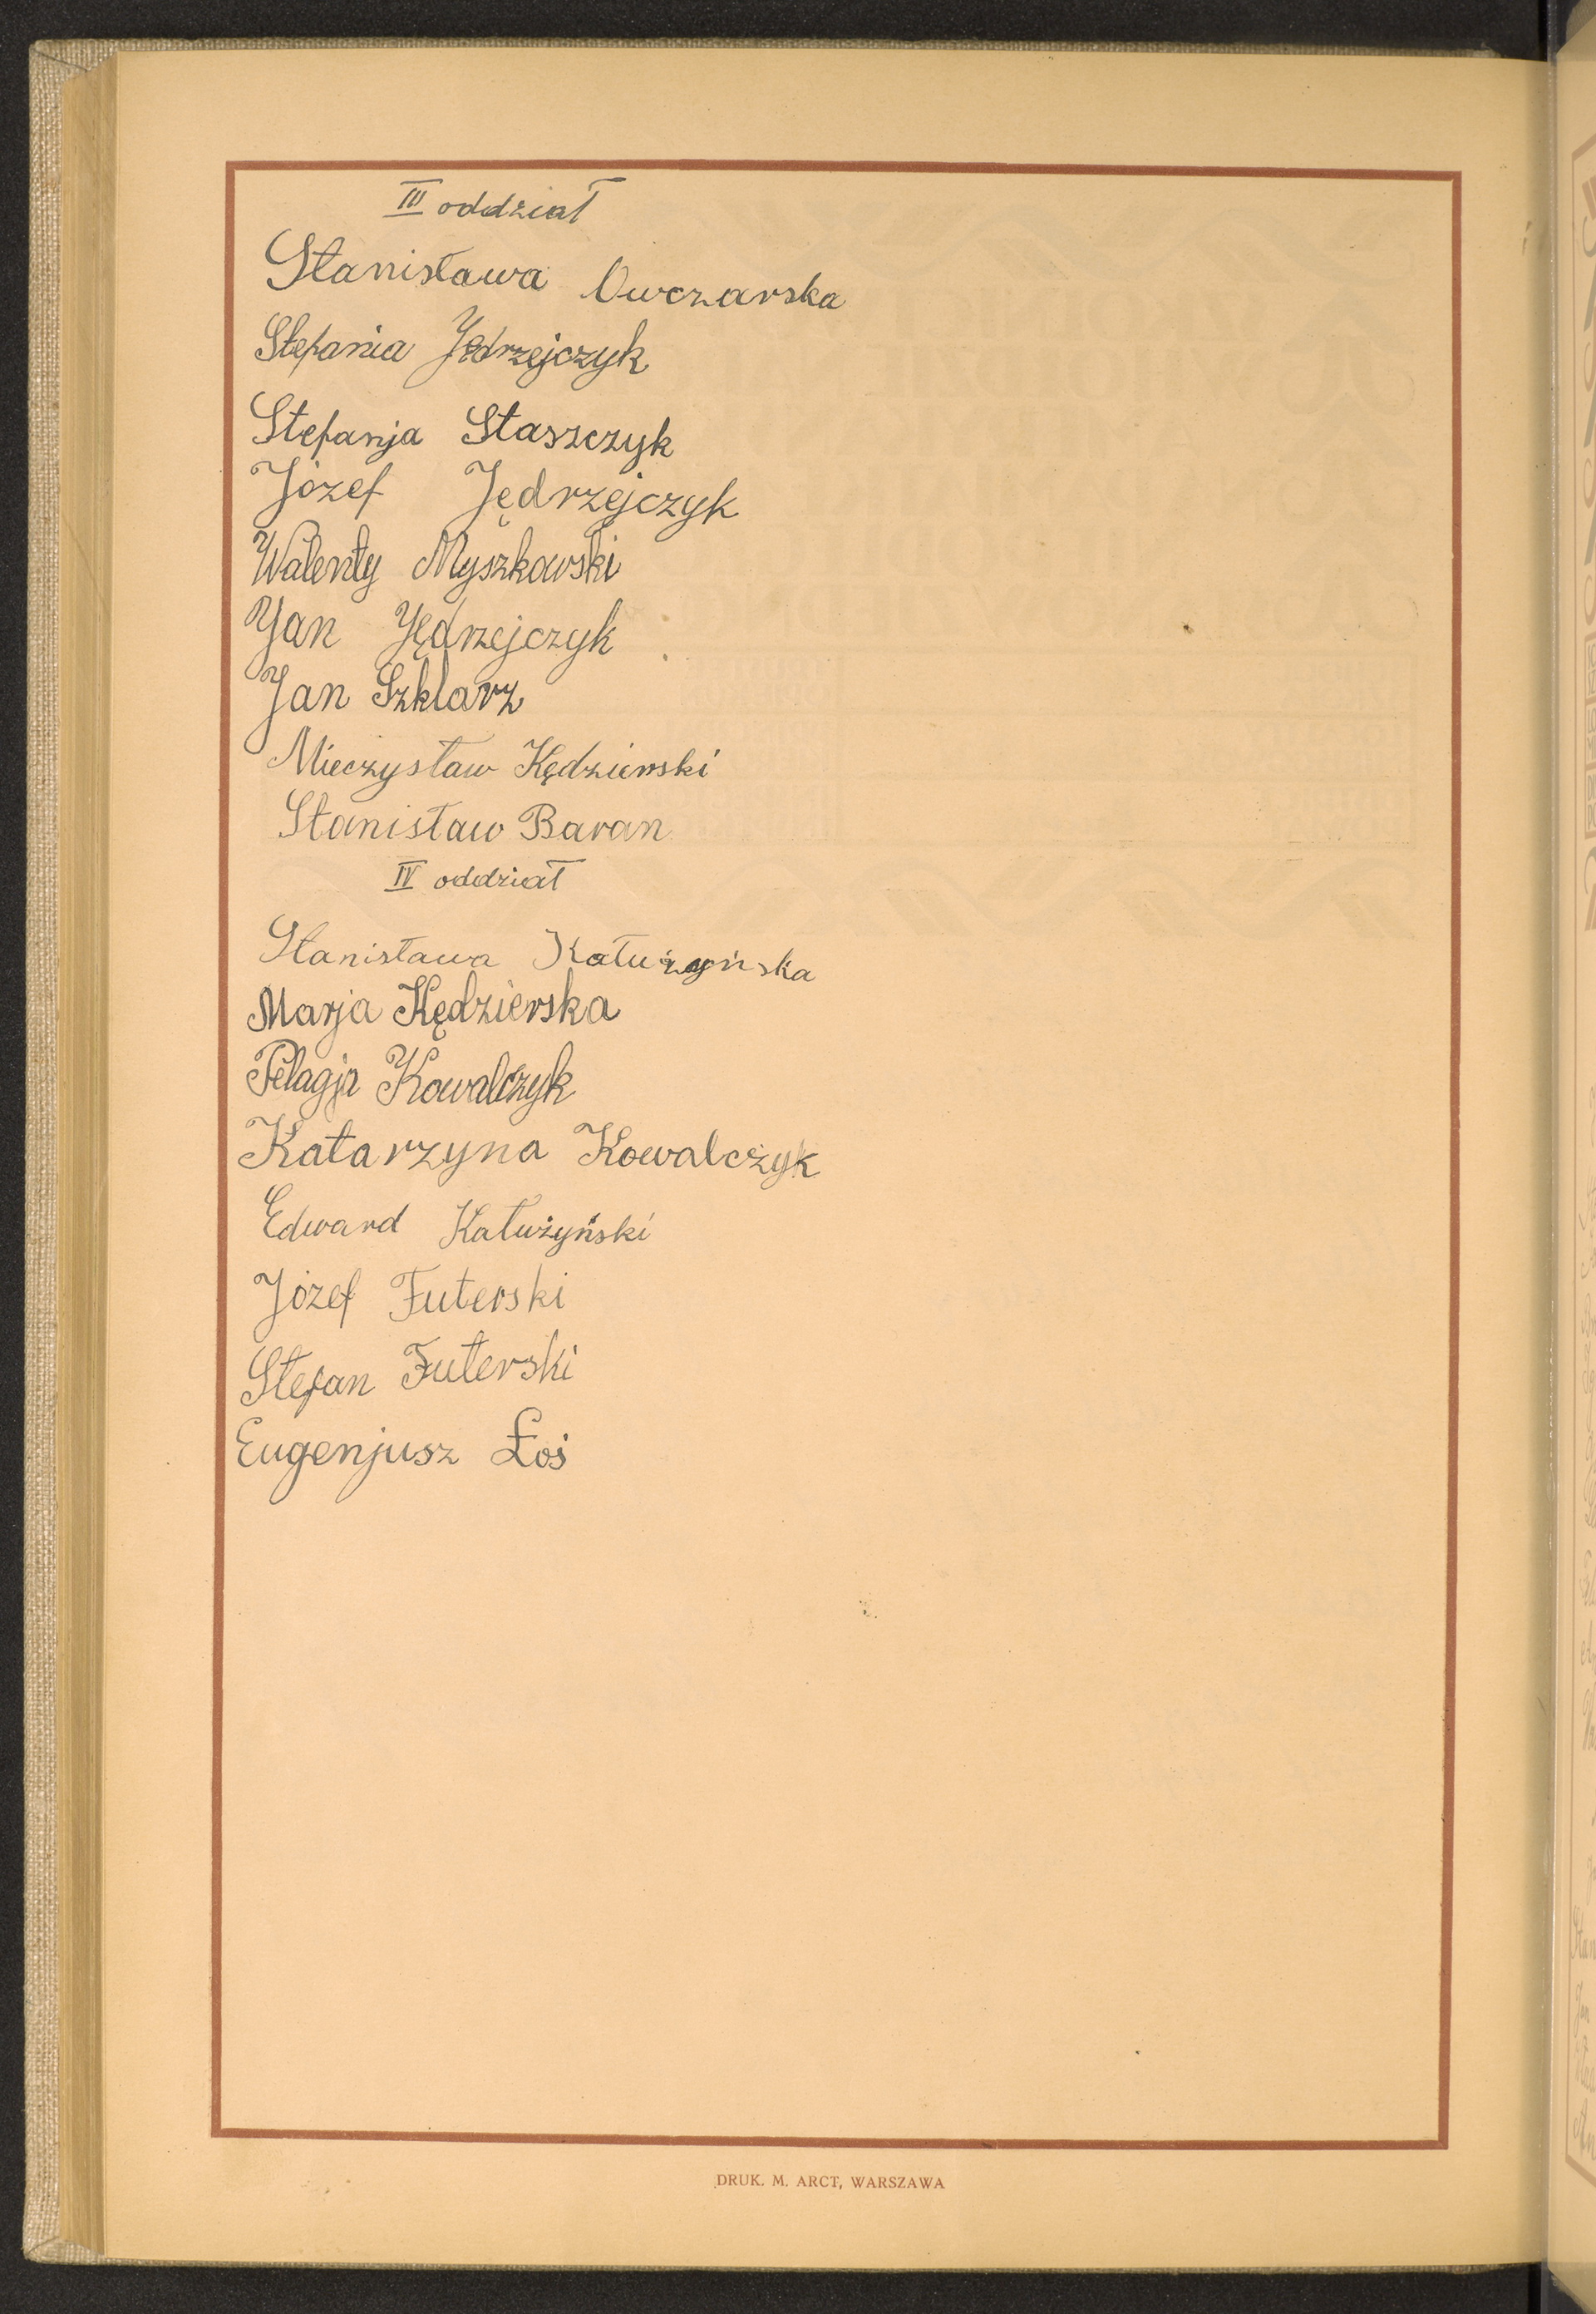 III oddział
Stanisława Owczarska
Stefania Jędrzejczyk
Stefanja Staszczyk
Józef Jędrzejczyk
Walenty Myszkowski
Jan Jędrzejczyk
Jan Szklarz
Mieczysław Kędzierski
Stanisław Baran
IV oddział
Stanisława Kałużyńska
Marja Kędzierska
Pelagja Kowalczyk
Katarzyna Kowalczyk
Edward Kałużyński
Józef Futerski
Stefan Futerski
Eugenjusz Łoś
DRUK. M. ARCT, WARSZAWA